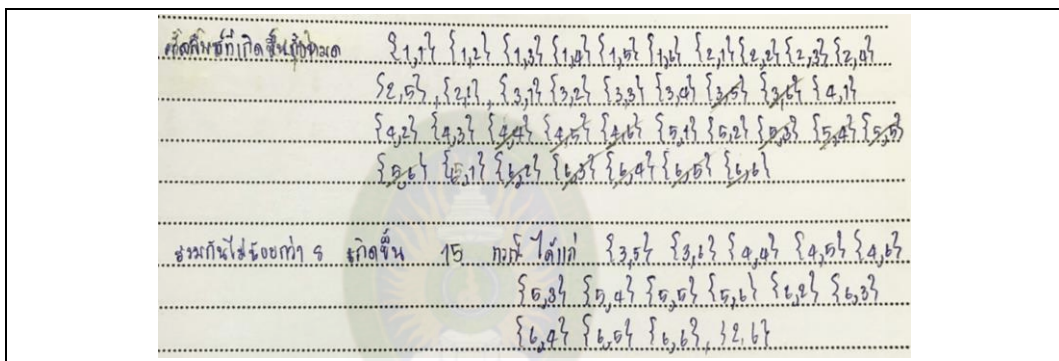 ผลลัพธ์ที่เกิดขึ้นทั้งหมด {1,1} {1,2} {1,3} {1,4} {1,5} {1,6} {2,1} {2,2} {2,3} {2,4}
{2,5} , {2,6} , {3,1} {3,2} {3,3} {3,4} {3,5} {3,6} {4,1}
{4,2} {4,3} {4,4} {4,5} {4,6} {5,1} {5,2} {5,3} {5,4} {5,5}
{5,6} {6,1} {6,2} {6,3} {6,4} {6,5} {6,6}
รวมกันไม่น้อยกว่า 8 เกิดขึ้น 15 กรณี ได้แก่ {3,5} {3,6} {4,4} {4,5} {4,6}
{5,3} {5,4} {5,5} {5,6} {6,2} {6,3}
{6,4} {6,5} {6,6} , {2,6}